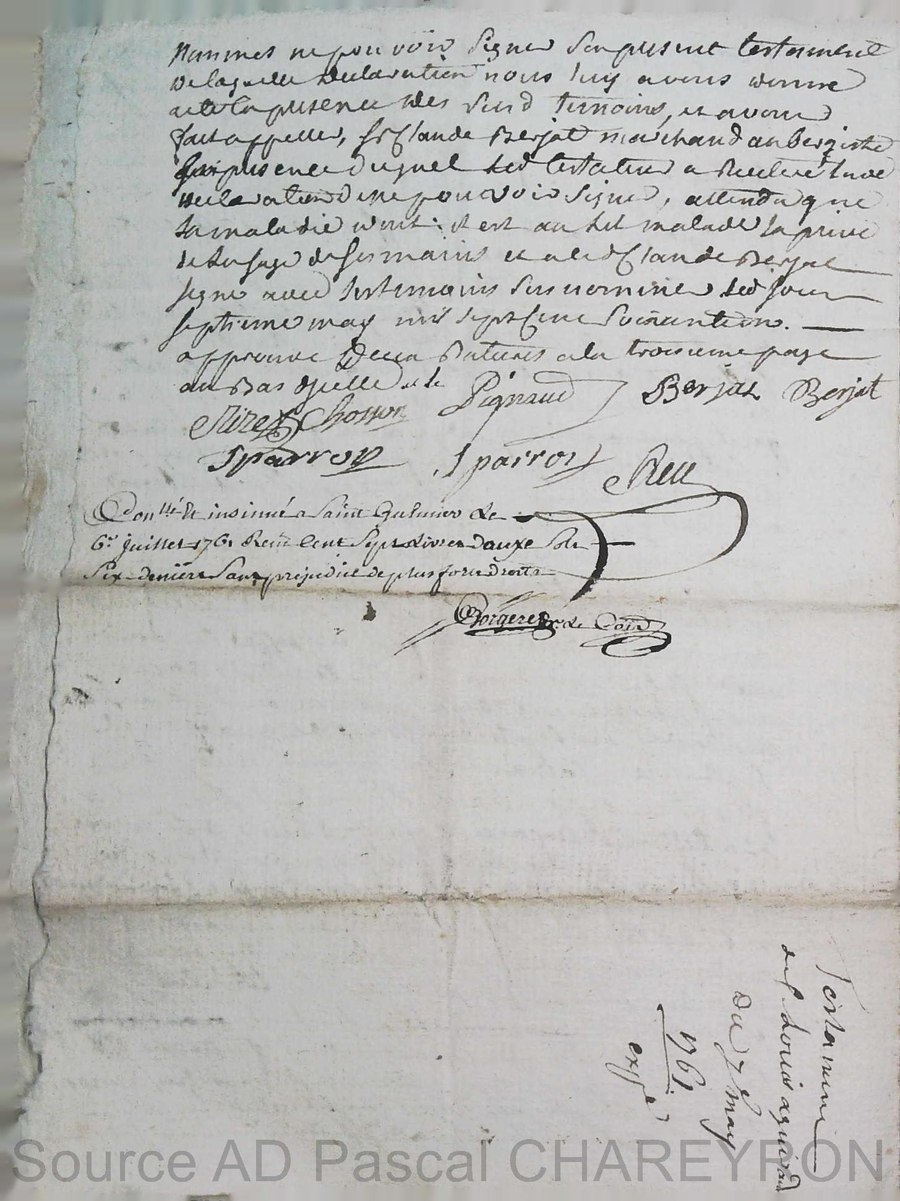 nommes ne pouvoir signer son present testament
de laquelle declaration nous luy avons donné
acte la presence des susd temoins, et avons
fait appeller, Sr Claude Berjat marchand aubergiste
en presence duquel led testateur a reiteré la de
declaration de ne pouvoir signer, attendu que
sa maladie dont il est au lit malade la privé
de lusage de ses mains et a led Sr Claude Berjat
signé avec les temoins sus nommes led jour
septieme may mil sept cent soixante un.
approuvé ratures a la troisieme page
au bas dycelle
Chosson Pignaud Berjat Berjat
Sparron Sparron
Conllé et insinué a Saint Galmier le
6e juillet 1761 Recu Cent Sept Livres douze Sols
Six deniers Sans prejudice de plus forts droits
Testament
de Sr Louis
Du 7e May
1761
expé
Source AD Pascal CHAREYRON